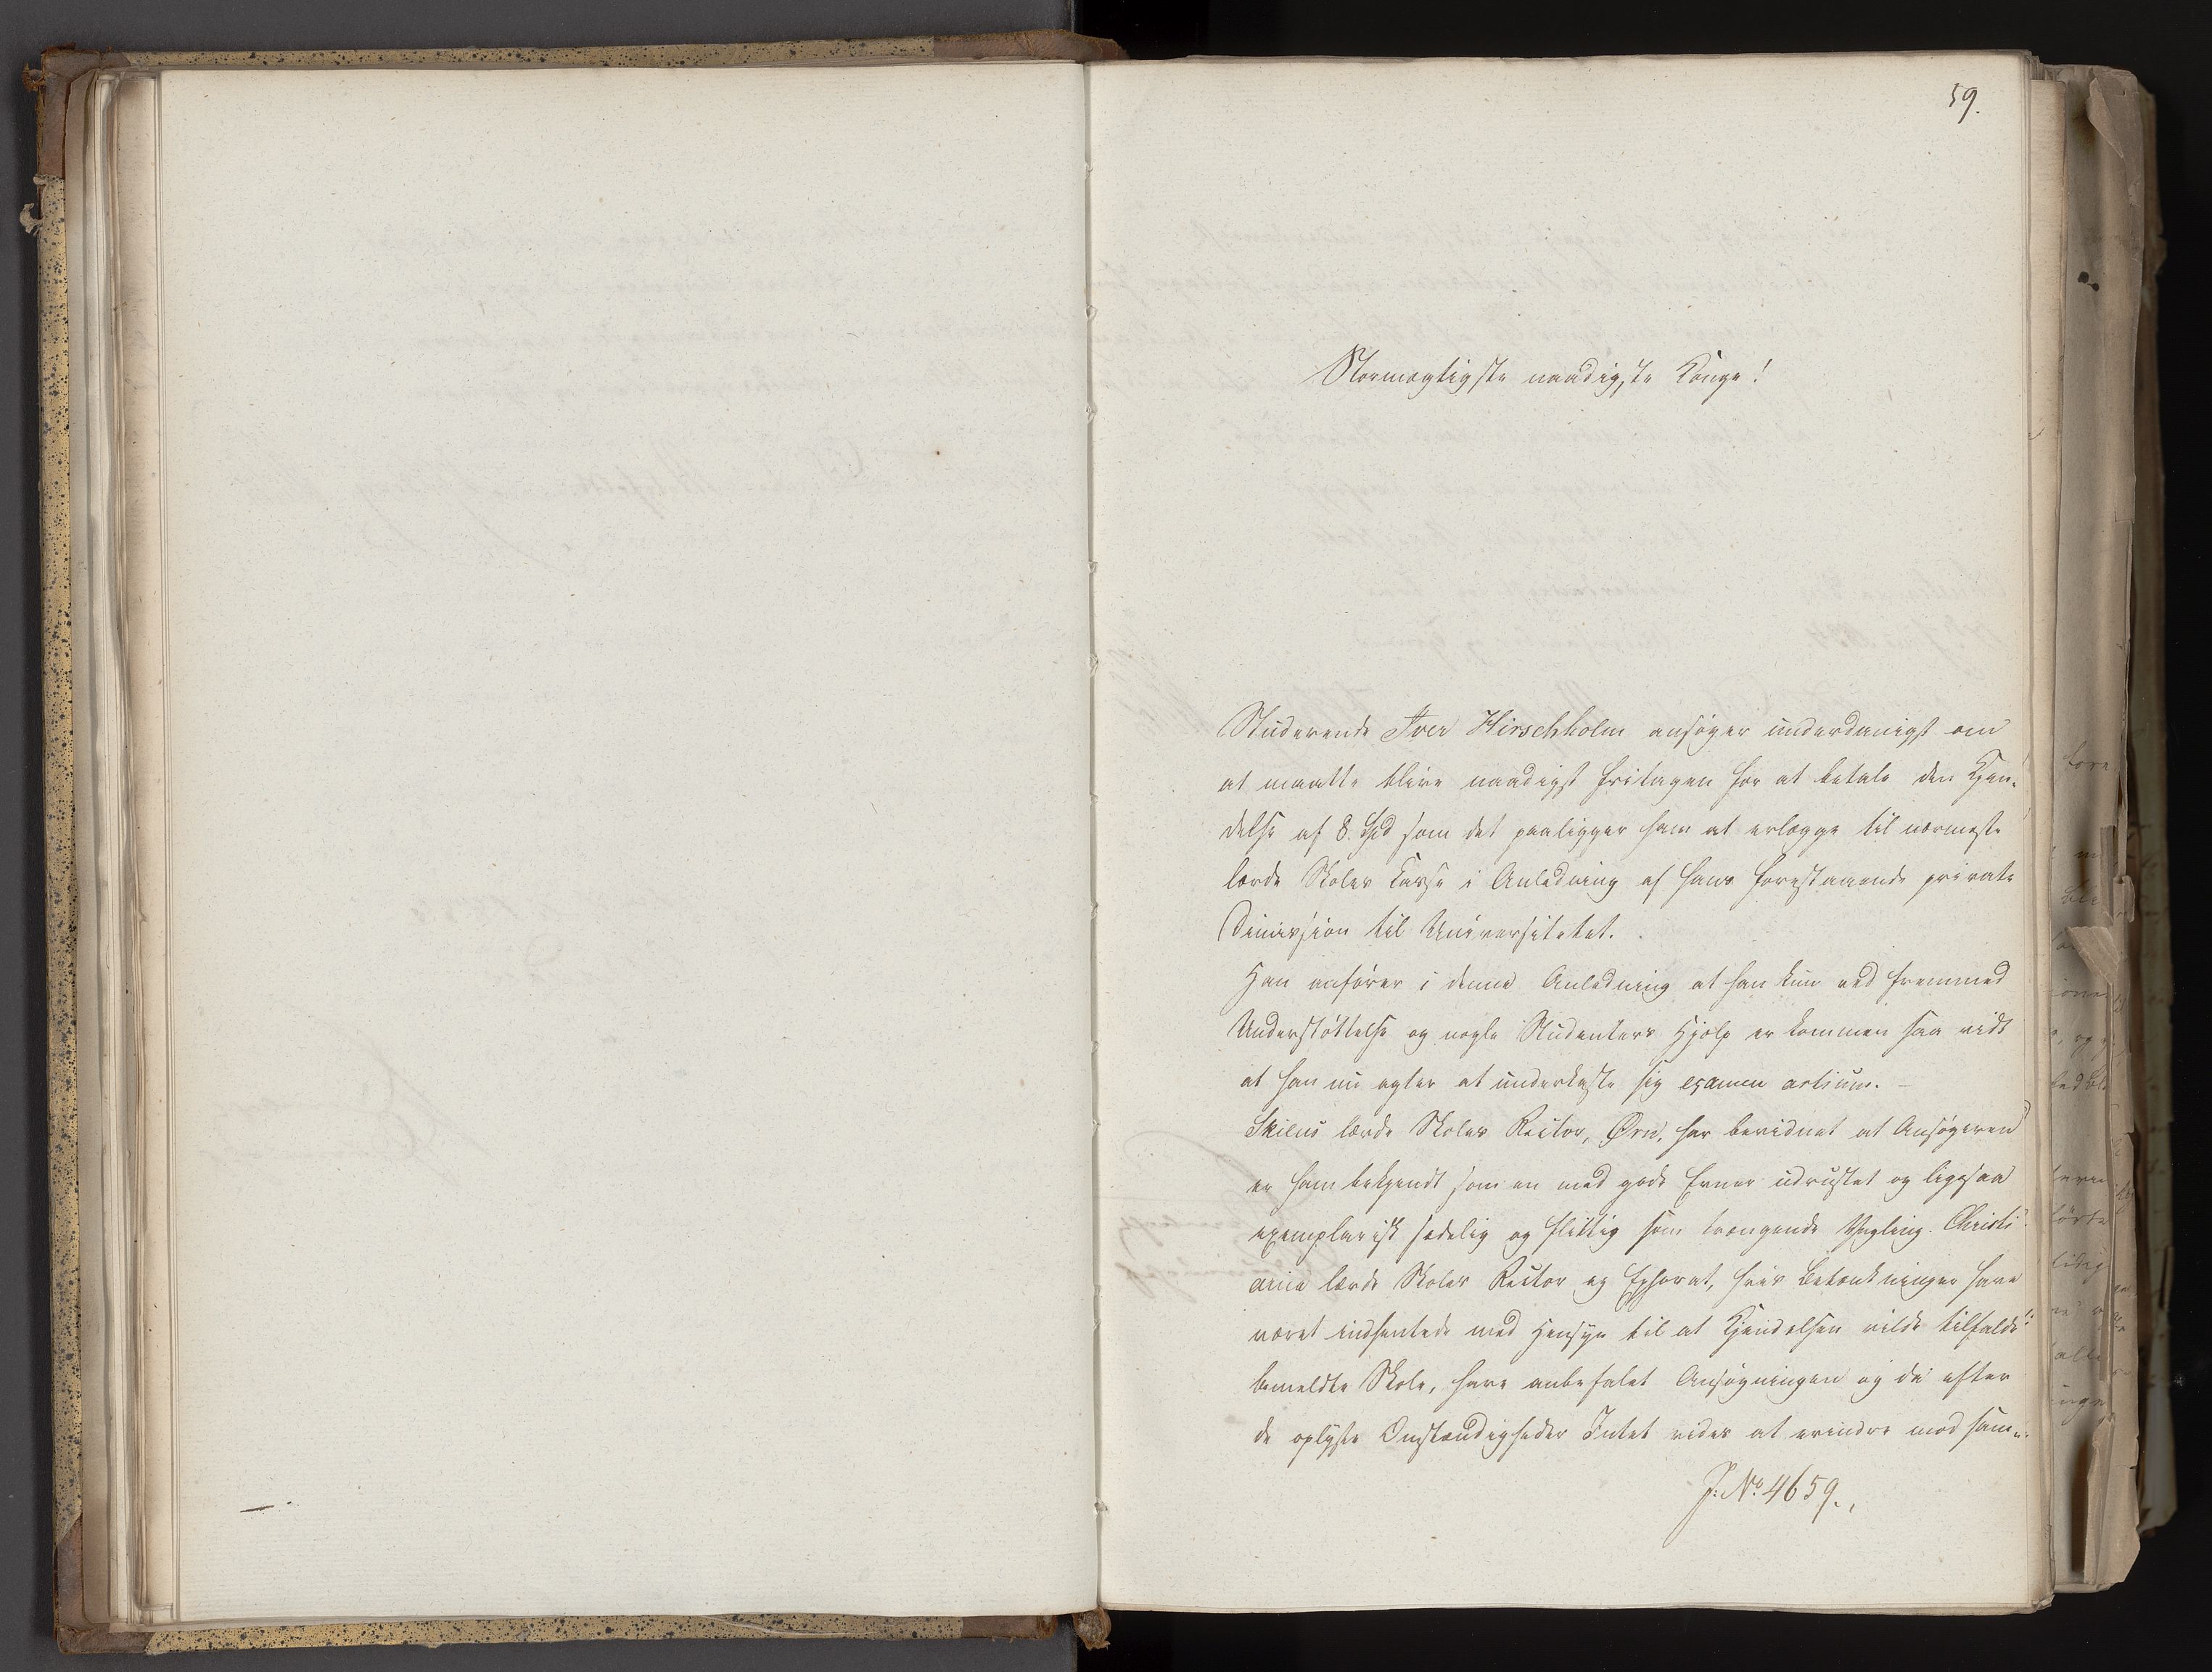 59.
Stormægtigste naadigste Konge!
Studerende Iver Hirschholm ansøger underdanigst om
at maatte blive naadigst fritagen for at betale den Kjen-
delse af 8 Spd som det paaligger ham at erlægge til nærmeste
lærde Skoles Kasse i Anledning af hans forestaaende private
Dimission til Universitetet.
Han anfører i denne Anledning at han kun ved fremmed
Understøttelse og nogle Studenters Hjelp er kommen saa vidt
at han nu agter at underkaste sig examen artium. –
Skiens lærde Skoles Rector, Ørn, har bevidnet at Ansøgeren
er ham bekjendt som en med gode Evner udrustet og ligesaa
exemplarisk sædelig og flittig som trængende Yngling. Christi-
ania lærde Skoles Rector og Ephorat, hvis Betænkninger have
været indhentede med Hensyn til at Kjendelsen vilde tilfalde
bemeldte Skole, have anbefalet Ansøgningen og da efter
de oplyste Omstændigheder Intet vides at erindre mod sam-
J: No. 4659.